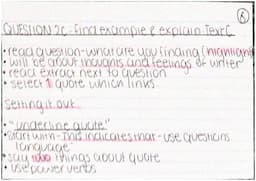 6
QUESTION 2C - Find example & explain Text C
• read question - what are you finding (highlight)
• will be about thoughts and feelings of writer
• read extract next to question
• select 1 quote which links
Setting it out
• "underline quote"
• start with - This indicates that - use questions
language
• say things about quote
• use power verbs